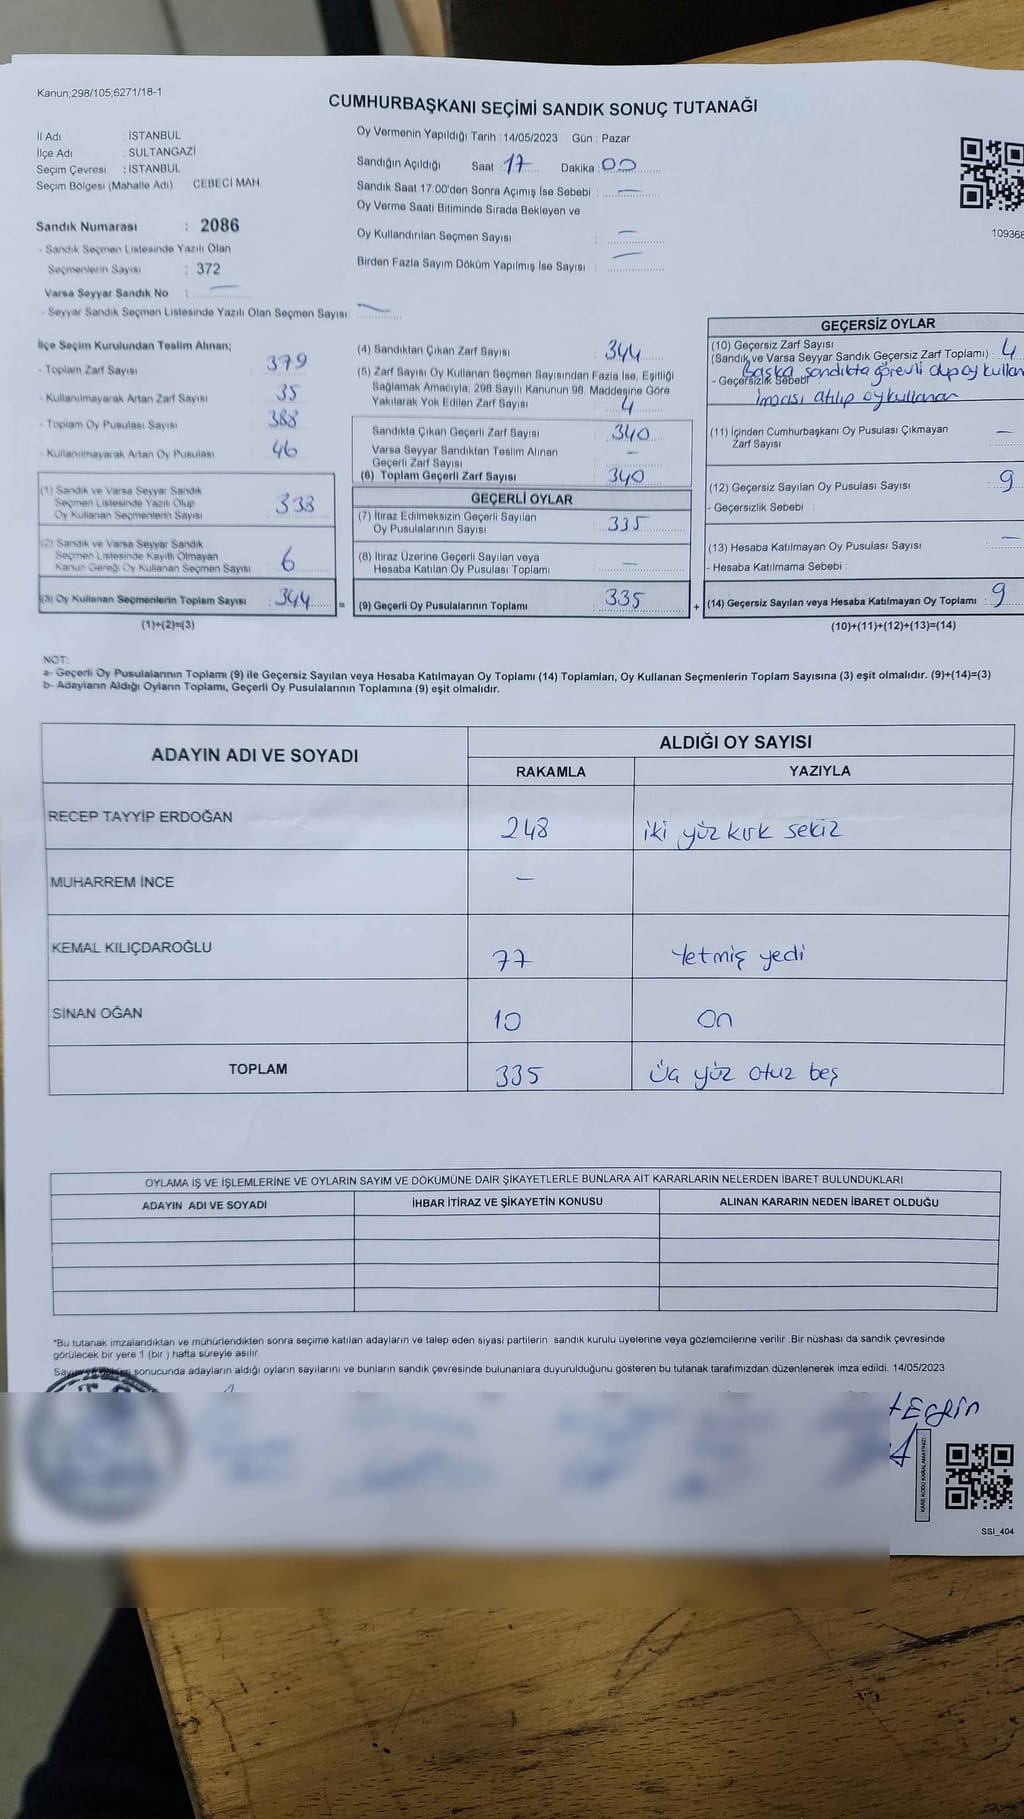 Kanun;298/105;6271/18-1
CUMHURBAŞKANI SEÇİMİ SANDIK SONUÇ TUTANAĞI
İl Adı : İSTANBUL
İlçe Adı : SULTANGAZİ
Seçim Çevresi : İSTANBUL
Seçim Bölgesi (Mahalle Adı) : CEBECİ MAH.
Sandık Numarası : 2086
- Sandık Seçmen Listesinde Yazılı Olan
Seçmenlerin Sayısı : 372
Varsa Seyyar Sandık No : —
- Seyyar Sandık Seçmen Listesinde Yazılı Olan Seçmen Sayısı —
Oy Vermenin Yapıldığı Tarih : 14/05/2023 Gün : Pazar
Sandığın Açıldığı Saat : 17 Dakika : 00
Sandık Saat 17:00'den Sonra Açımış İse Sebebi : —
Oy Verme Saati Bitiminde Sırada Bekleyen ve
Oy Kullandırılan Seçmen Sayısı : —
Birden Fazla Sayım Döküm Yapılmış İse Sayısı : —
109368
İlçe Seçim Kurulundan Teslim Alınan;
- Toplam Zarf Sayısı : 379
- Kullanılmayarak Artan Zarf Sayısı : 35
- Toplam Oy Pusulası Sayısı : 388
- Kullanılmayarak Artan Oy Pusulası : 46
(1) Sandık ve Varsa Seyyar Sandık
Seçmen Listesinde Yazılı Olup
Oy Kullanan Seçmenlerin Sayısı : 338
(2) Sandık ve Varsa Seyyar Sandık
Seçmen Listesinde Kayıtlı Olmayan
Kanun Gereği Oy Kullanan Seçmen Sayısı : 6
(3) Oy Kullanan Seçmenlerin Toplam Sayısı : 344 =
(1)+(2)=(3)
(4) Sandıktan Çıkan Zarf Sayısı : 344
(5) Zarf Sayısı Oy Kullanan Seçmen Sayısından Fazla İse, Eşitliği
Sağlamak Amacıyla, 298 Sayılı Kanunun 98. Maddesine Göre
Yakılarak Yok Edilen Zarf Sayısı : 4
Sandıkta Çıkan Geçerli Zarf Sayısı : 340
Varsa Seyyar Sandıktan Teslim Alınan
Geçerli Zarf Sayısı : —
(6) Toplam Geçerli Zarf Sayısı : 340
GEÇERLİ OYLAR
(7) İtiraz Edilmeksizin Geçerli Sayılan
Oy Pusulalarının Sayısı : 335
(8) İtiraz Üzerine Geçerli Sayılan veya
Hesaba Katılan Oy Pusulası Toplamı : —
(9) Geçerli Oy Pusulalarının Toplamı : 335 +
GEÇERSİZ OYLAR
(10) Geçersiz Zarf Sayısı
(Sandık ve Varsa Seyyar Sandık Geçersiz Zarf Toplamı) : 4
- Geçersizlik Sebebi : Başka sandıkta görevli olup oy kullan
İmzası atılıp oy kullanan
(11) İçinden Cumhurbaşkanı Oy Pusulası Çıkmayan
Zarf Sayısı : —
(12) Geçersiz Sayılan Oy Pusulası Sayısı : 9
- Geçersizlik Sebebi :
(13) Hesaba Katılmayan Oy Pusulası Sayısı : —
- Hesaba Katılmama Sebebi :
(14) Geçersiz Sayılan veya Hesaba Katılmayan Oy Toplamı : 9
(10)+(11)+(12)+(13)=(14)
NOT:
a- Geçerli Oy Pusulalarının Toplamı (9) ile Geçersiz Sayılan veya Hesaba Katılmayan Oy Toplamı (14) Toplamları, Oy Kullanan Seçmenlerin Toplam Sayısına (3) eşit olmalıdır. (9)+(14)=(3)
b- Adayların Aldığı Oyların Toplamı, Geçerli Oy Pusulalarının Toplamına (9) eşit olmalıdır.
ADAYIN ADI VE SOYADI ALDIĞI OY SAYISI
RAKAMLA YAZIYLA
RECEP TAYYİP ERDOĞAN 248 iki yüz kırk sekiz
MUHARREM İNCE —
KEMAL KILIÇDAROĞLU 77 Yetmiş yedi
SİNAN OĞAN 10 On
TOPLAM 335 üç yüz otuz beş
OYLAMA İŞ VE İŞLEMLERİNE VE OYLARIN SAYIM VE DÖKÜMÜNE DAİR ŞİKAYETLERLE BUNLARA AİT KARARLARIN NELERDEN İBARET BULUNDUKLARI
ADAYIN ADI VE SOYADI İHBAR İTİRAZ VE ŞİKAYETİN KONUSU ALINAN KARARIN NEDEN İBARET OLDUĞU
*Bu tutanak imzalandıktan ve mühürlendikten sonra seçime katılan adayların ve talep eden siyasi partilerin sandık kurulu üyelerine veya gözlemcilerine verilir .Bir nüshası da sandık çevresinde
görülecek bir yere 1 (bir ) hafta süreyle asılır.
sonucunda adayların aldığı oyların sayılarını ve bunların sandık çevresinde bulunanlara duyurulduğunu gösteren bu tutanak tarafımızdan düzenlenerek imza edildi. 14/05/2023
KARE KODU KARALAMAYINIZ!
SSI_404